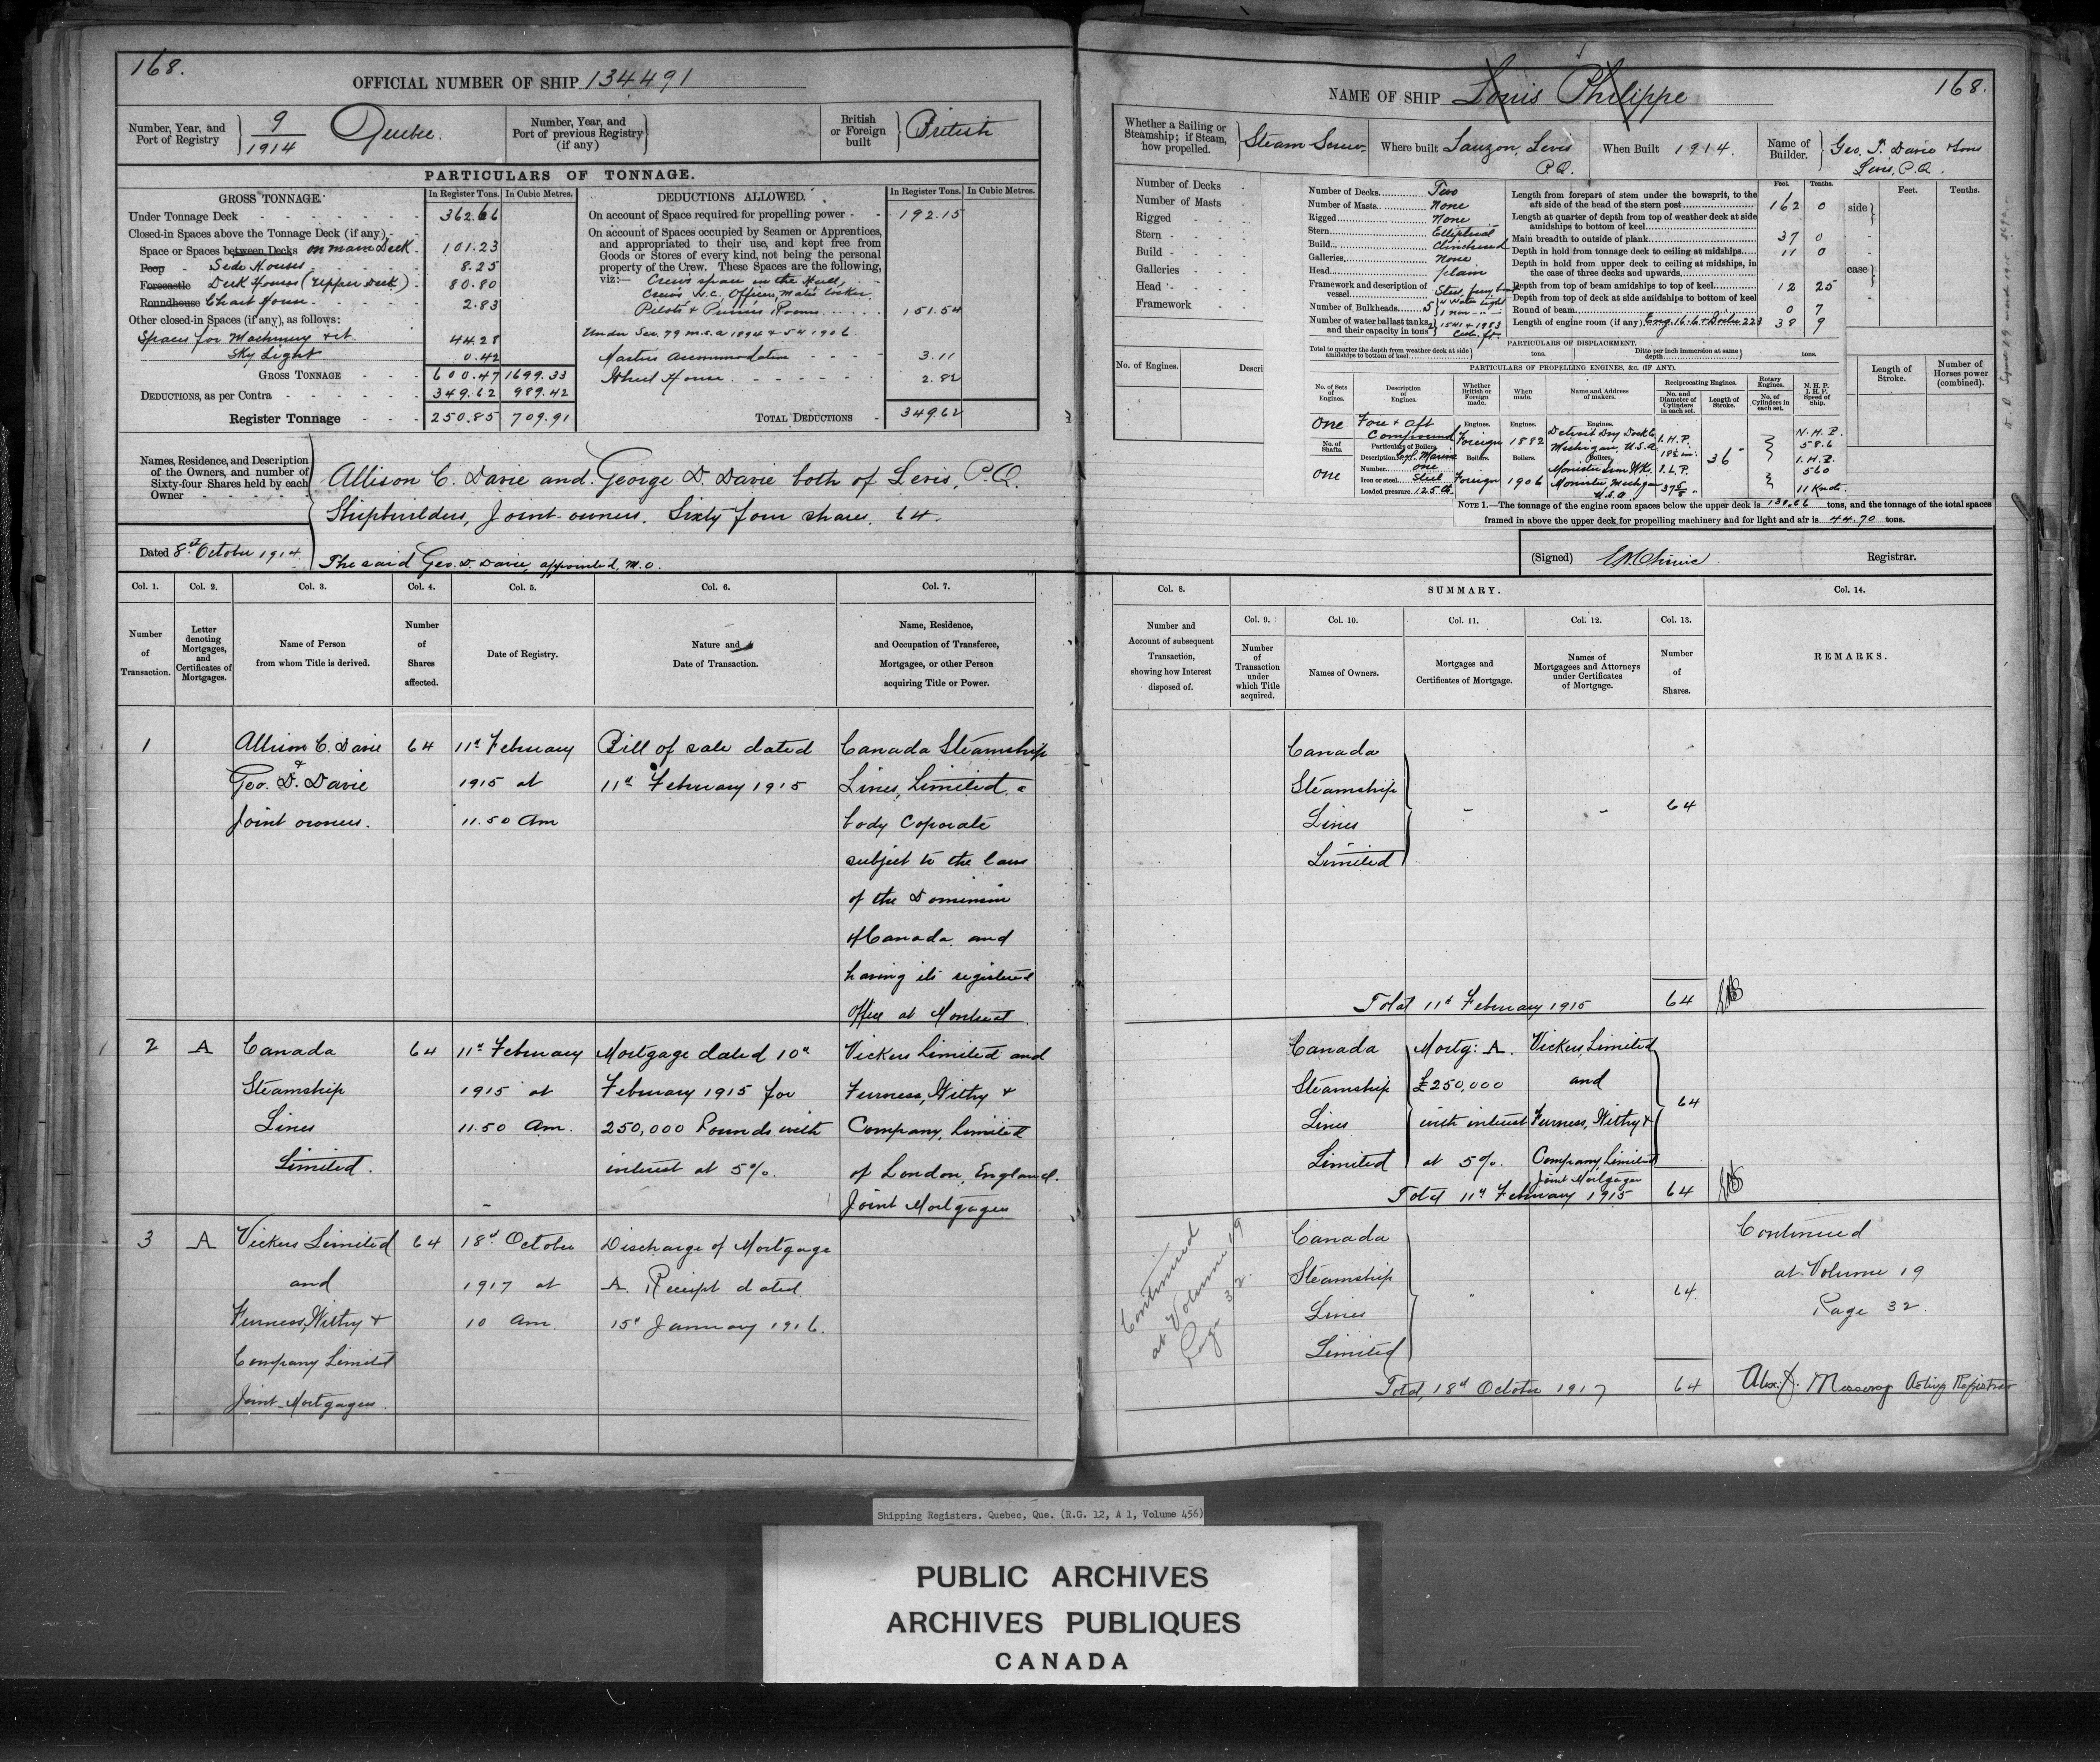 168.
OFFICIAL NUMBER OF SHIP 134491
Number, Year, and Port of Registry } 9/1914 Quebec.
Number, Year, and Port of previous Registry (if any) }
British or Foreign built } British
PARTICULARS OF TONNAGE.
GROSS TONNAGE. In Register Tons. In Cubic Metres.
Under Tonnage Deck 362.66
Closed-in Spaces above the Tonnage Deck (if any)
Space or Spaces between Decks on main Deck 101.23
Poop Side Houses 8.25
Forecastle Deck Houses (Upper Deck) 80.80
Roundhouse Chart House 2.83
Other closed-in Spaces (if any), as follows:
Spaces for Machinery &ct 44.28
Sky Light 0.42
GROSS TONNAGE 600.47 1699.33
DEDUCTIONS, as per Contra 349.62 989.42
Register Tonnage 250.85 709.91
DEDUCTIONS ALLOWED. In Register Tons. In Cubic Metres.
On account of Space required for propelling power 192.15
On account of Spaces occupied by Seamen or Apprentices,
and appropriated to their use, and kept free from
Goods or Stores of every kind, not being the personal
property of the Crew. These Spaces are the following,
viz:— Crew's space in the Hull,
Crew's W.C., Officers, Mates locker
Pilots & Pursers Rooms 151.54
Under Sec. 79 M.S.A 1894 & 54 1906
Masters accommodation 3.11
Wheel House 2.82
TOTAL DEDUCTIONS 349.62
Names, Residence, and Description
of the Owners, and number of
Sixty-four Shares held by each
Owner
Allison C. Davie and George D. Davie both of Levis, P.Q.
Shipbuilders, Joint owners, Sixty four shares, 64.
Dated 8th October 1914
The said Geo. D. Davie, appointed, M.O.
Col. 1. Col. 2. Col. 3. Col. 4. Col. 5. Col. 6. Col. 7.
Number of Transaction.
Letter denoting Mortgages, and Certificates of Mortgages.
Name of Person from whom Title is derived.
Number of Shares affected.
Date of Registry.
Nature and Date of Transaction.
Name, Residence, and Occupation of Transferee, Mortgagee, or other Person acquiring Title or Power.
1 Allison C. Davie 64 11th February Bill of sale dated Canada Steamship
& Geo. D. Davie 1915 at 11th February 1915 Lines, Limited, a
Joint owners. 11.50 Am body Coporate
subject to the laws
of the Dominion
of Canada and
having its registered
Office at Montreal
2 A Canada 64 11th February Mortgage dated 10th Vickers Limited and
Steamship 1915 at February 1915 for Furness, Withy &
Lines 11.50 Am. 250,000 Pounds with Company, Limited
Limited. interest at 5%. of London, England.
Joint Mortgagees
3 A Vickers Limited 64 18th October Discharge of Mortgage
and 1917 at A. Receipt dated
Furness, Withy & 10 am. 15th January 1916.
Company Limited
Joint Mortgagees.
NAME OF SHIP Louis Philippe 168.
Whether a Sailing or Steamship; if Steam, how propelled. } Steam Screw
Where built Lauzon, Levis P.Q.
When Built 1914.
Name of Builder. } Geo. T. Davie & Sons Levis, P.Q.
Number of Decks
Number of Masts
Rigged
Stern
Build
Galleries
Head
Framework
No. of Engines. Descri
Number of Decks Two
Number of Masts None
Rigged None
Stern Elliptical
Build Clinchered
Galleries None
Head plain
Framework and description of vessel Steel,
Number of Bulkheads 5
Number of water ballast tanks, and their capacity in tons
Feet. Tenths.
Length from forepart of stem under the bowsprit, to the aft side of the head of the stern post 162 0
Length at quarter of depth from top of weather deck at side amidships to bottom of keel
Main breadth to outside of plank 37 0
Depth in hold from tonnage deck to ceiling at midships 11 0
Depth in hold from upper deck to ceiling at midships, in the case of three decks and upwards
Depth from top of beam amidships to top of keel 12 25
Depth from top of deck at side amidships to bottom of keel
Round of beam 0 7
Length of engine room (if any) Eng. 16.6 & Boiler 22.3 38 9
side }
case }
Feet. Tenths.
Length of Stroke.
Number of Horses power (combined).
PARTICULARS OF DISPLACEMENT.
Total to quarter the depth from weather deck at side amidships to bottom of keel } tons. Ditto per inch immersion at same depth } tons.
PARTICULARS OF PROPELLING ENGINES, &c. (IF ANY).
No. of Sets of Engines.
Description of Engines.
Whether British or Foreign made.
When made.
Name and Address of makers.
Reciprocating Engines.
No. and Diameter of Cylinders in each set.
Length of Stroke.
Rotary Engines.
No. of Cylinders in each set.
N. H. P. I. H. P. Speed of Ship.
One Fore & Aft Compound
Engines. Foreign 1882 Detroit Dry Dock Co Michigan, U.S.A. 1. H.P. 18½ in. 36" N.H.P. 58.6
No. of Shafts. One
Particulars of Boilers.
Description Cyl. Marine
Number one
Iron or steel Steel
Loaded pressure 125 lb.
Boilers. Foreign 1906 Iron Wks. Michigan U.S.A. 1. L.P. I.H.P. 560 11 Knots
NOTE 1.—The tonnage of the engine room spaces below the upper deck is 130.66 tons, and the tonnage of the total spaces
framed in above the upper deck for propelling machinery and for light and air is 44.70 tons.
(Signed) Registrar.
Col. 8. SUMMARY. Col. 14.
Col. 9. Col. 10. Col. 11. Col. 12. Col. 13.
Number and Account of subsequent Transaction, showing how Interest disposed of.
Number of Transaction under which Title acquired.
Names of Owners.
Mortgages and Certificates of Mortgage.
Names of Mortgagees and Attorneys under Certificates of Mortgage.
Number of Shares.
REMARKS.
Canada
Steamship
Lines 64
Limited
Total 11th February 1915 64
Canada Mortg: A. Vickers, Limited
Steamship £250,000 and
Lines with interest Furness, Withy & 64
Limited at 5%. Company, Limited
Joint Mortgagees
Total 11th February 1915 64
Continued at Volume 19 Page 32
Canada
Steamship
Lines 64.
Limited
Total, 18th October 1917 64
Continued
at Volume 19
Page 32.
Acting Registrar
Shipping Registers. Quebec, Que. (R.G. 12, A 1, Volume 456)
PUBLIC ARCHIVES
ARCHIVES PUBLIQUES
CANADA